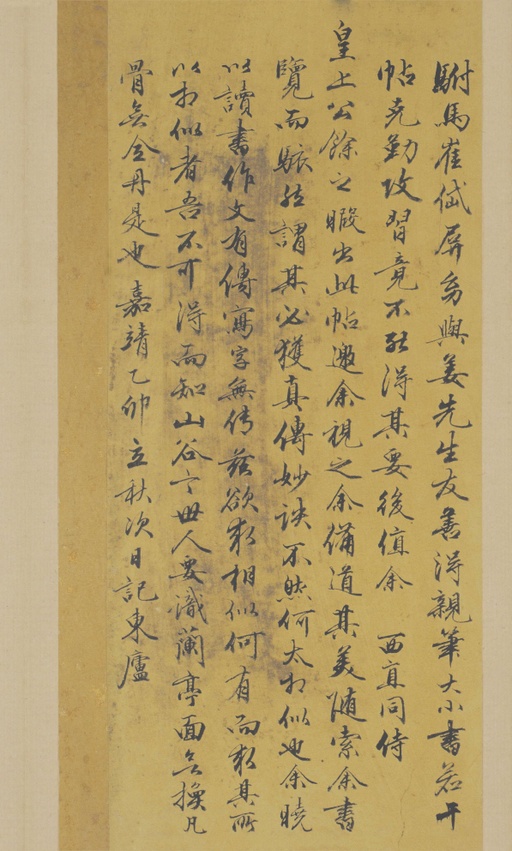 駙馬崔岱屏舅與姜先生友善得親筆大小書若干
帖克勤攻習竟不能得其要後值余 西直同侍
皇上公餘之暇出此帖邀余視之余備道其美隨索余書
覽而駭然謂其必獲真傳妙訣不然何太相似也余曉
以讀書作文有傳寫字無傳茲欲求相似何有而求其所
以相似者吾不可得而知山谷云世人要識蘭亭面無換凡
骨無金丹是也嘉靖乙卯立秋次日記東廬